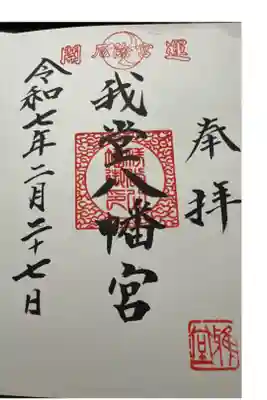 奉拝
我堂八幡宮
令和七年二月二十七日